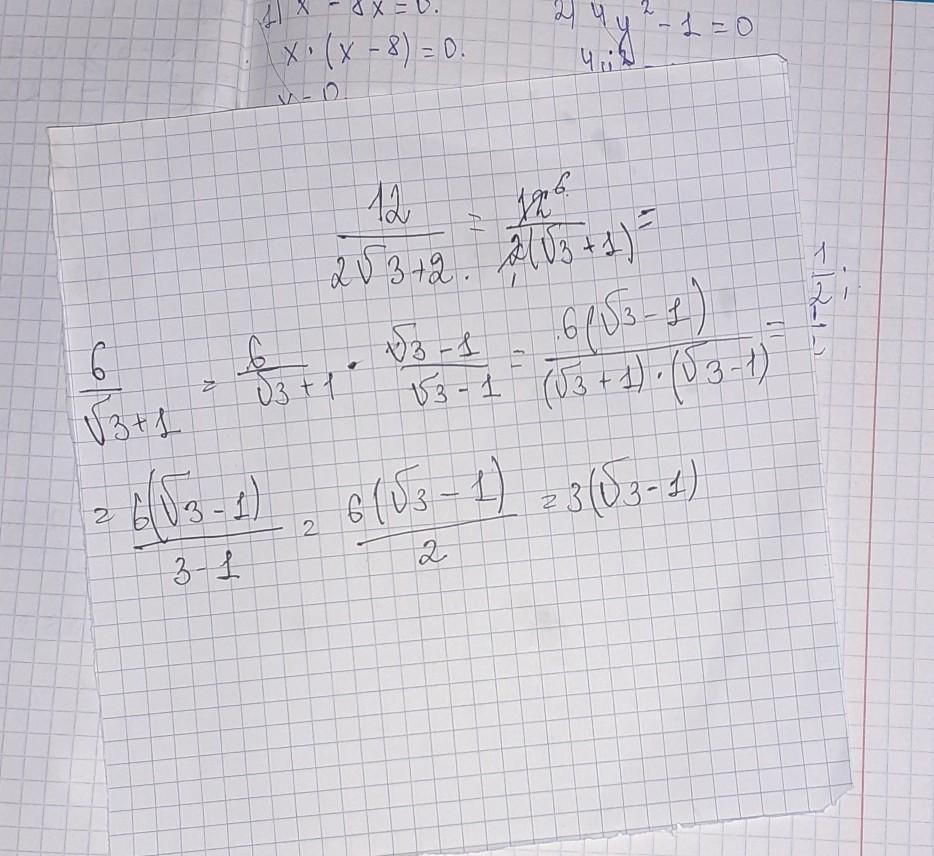 1) x² - 8x = 0. 2) 4y² - 1 = 0
x · (x - 8) = 0.
12/(2√3+2) = 12⁶/2(√3+1) =
6/(√3+1) = 6/(√3+1) · (√3-1)/(√3-1) = 6(√3-1)/((√3+1)·(√3-1)) =
= 6(√3-1)/(3-1) = 6(√3-1)/2 = 3(√3-1)
1/2;